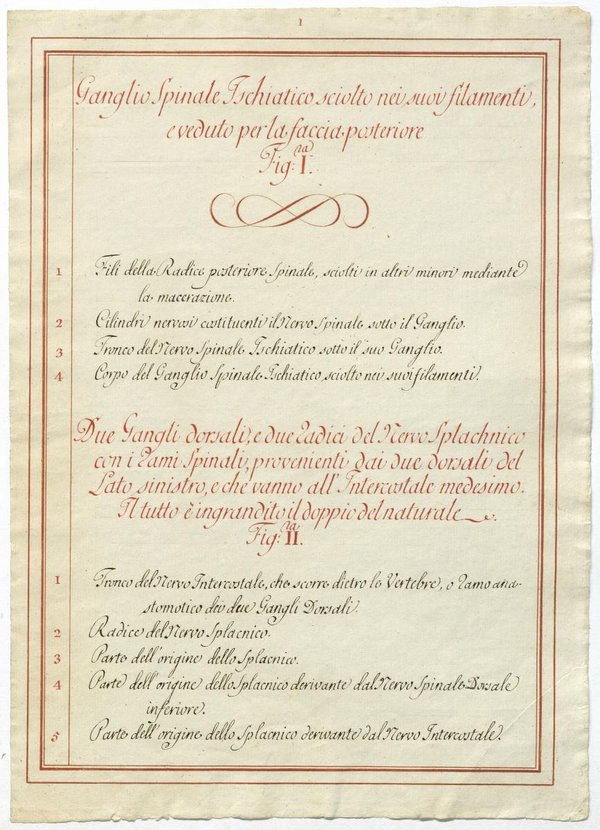 1
Ganglio Spinale Ischiatico sciolto nei suoi filamenti,
e veduto per la faccia posteriore
Fig:ra I.
1 Fili della Radice posteriore Spinale, sciolti in altri minori mediante
la macerazione.
2 Cilindri nervosi costituenti il Nervo Spinale sotto il Ganglio.
3 Tronco del Nervo Spinale Ischiatico sotto il suo Ganglio.
4 Corpo del Ganglio Spinale Ischiatico sciolto nei suoi filamenti.
Due Gangli dorsali, e due Radici del Nervo Splachnico
con i Rami Spinali, provenienti dai due dorsali del
Lato sinistro, e che vanno all'Intercostale medesimo.
Il tutto è ingrandito il doppio del naturale.
Fig:ra II.
1 Tronco del Nervo Intercostale, che scorre dietro le Vertebre, o Ramo ana-
stomotico dei due Gangli Dorsali.
2 Radice del Nervo Splacnico.
3 Parte dell'origine dello Splacnico.
4 Parte dell'origine dello Splacnico derivante dal Nervo Spinale Dorsale
inferiore.
5 Parte dell'origine dello Splacnico derivante dal Nervo Intercostale.